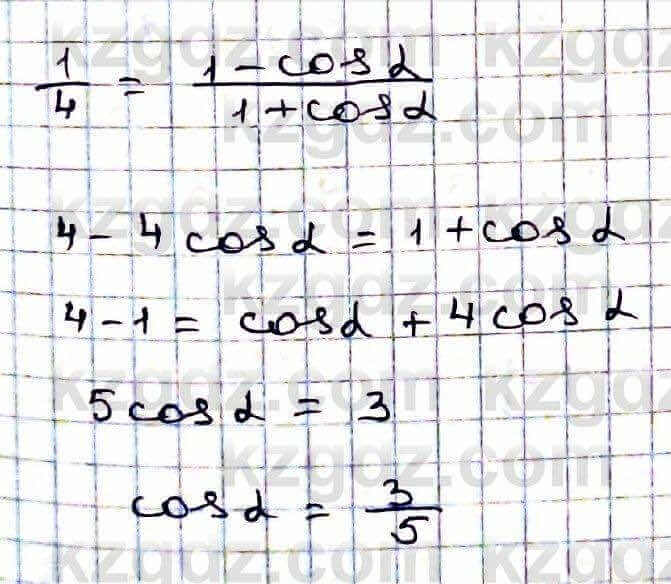 1/4 = (1 - cos α)/(1 + cos α)
4 - 4 cos α = 1 + cos α
4 - 1 = cos α + 4 cos α
5 cos α = 3
cos α = 3/5
kzgdz.com